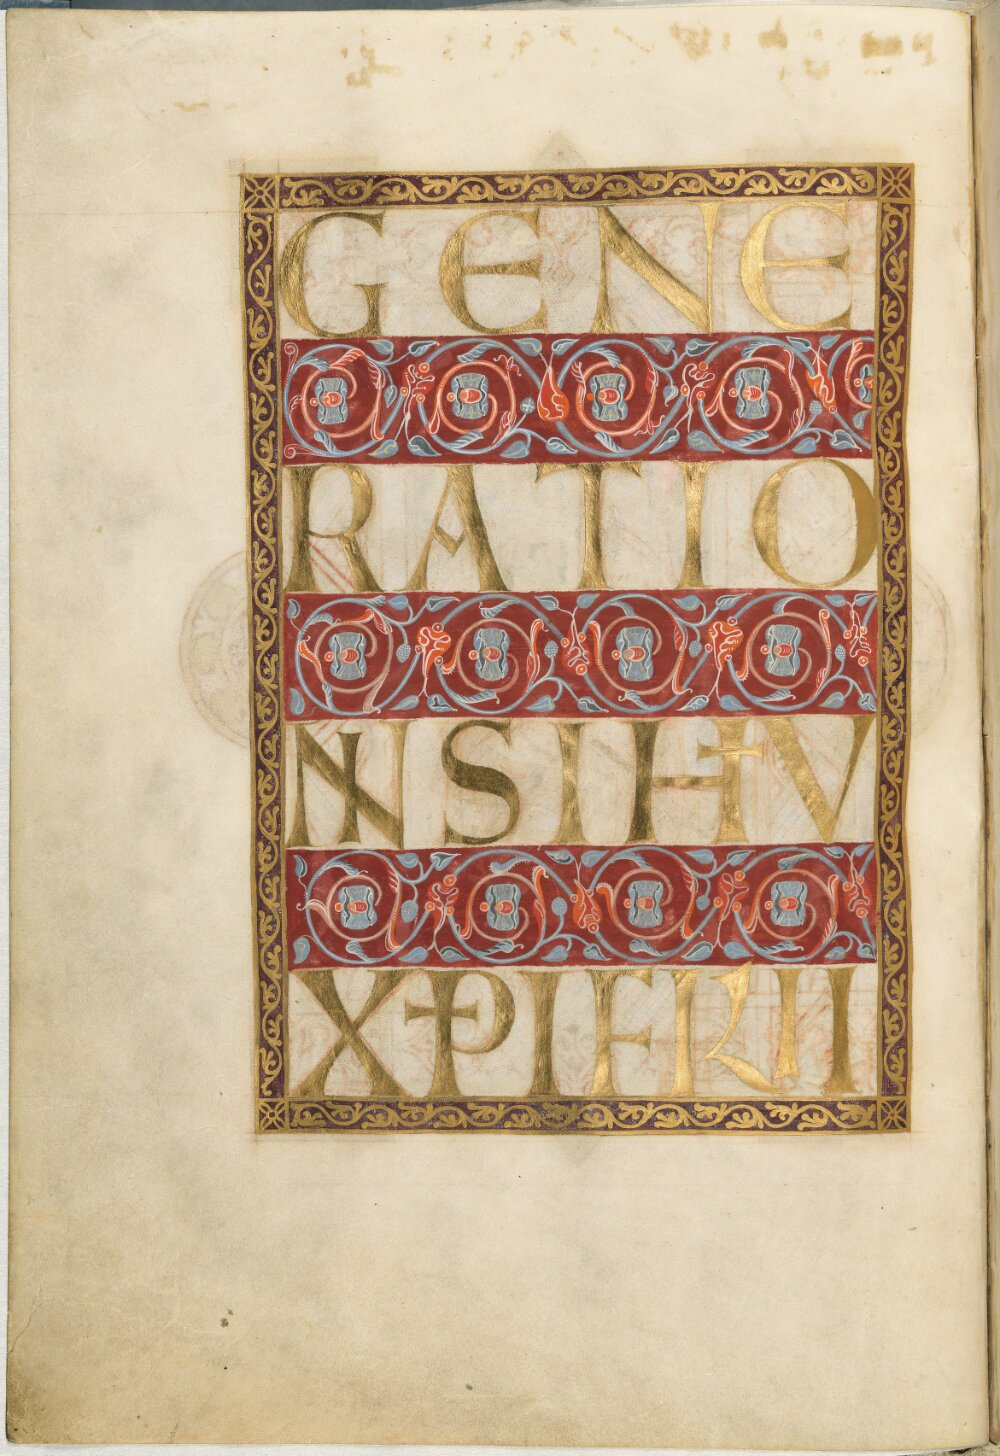 GENE
RATIO
NIS IHV
XPI FILII